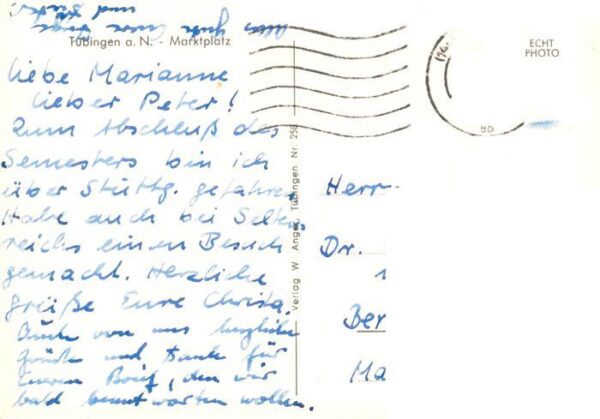 und
Alles Gute Eure
Tübingen a. N. - Marktplatz
ECHT
PHOTO
Liebe Marianne
lieber Peter!
Zum Abschluß des
Semesters bin ich
über Stuttg. gefahren
Habe auch bei Selten
reichs einen Besuch
gemacht. Herzliche
Grüße Eure Christa.
Auch von uns herzliche
Grüße und Dank für
Eueren Brief, den wir
bald beantworten wollen.
Verlag W. Anger, Tübingen Nr. 256
Herr
Dr.
Ber
Ma